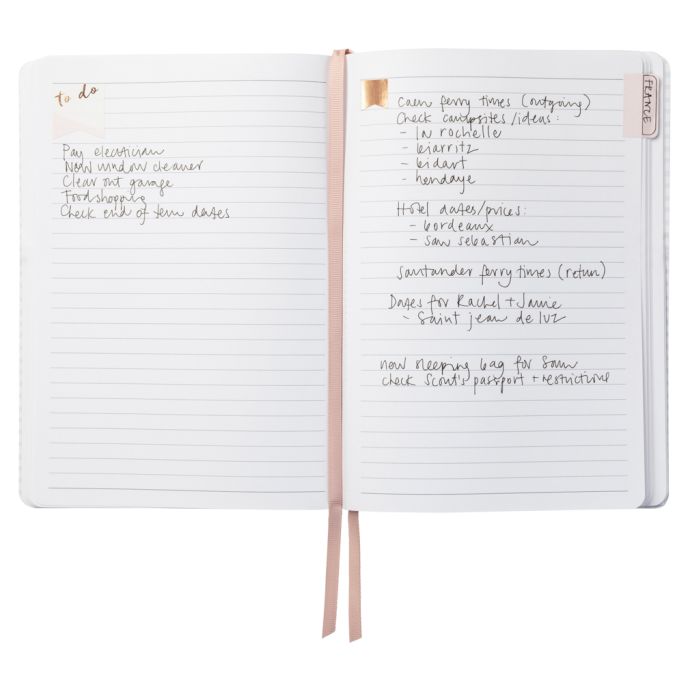 to do
Pay electrician
New window cleaner
Clear out garage
Food shopping
Check end of term dates
FRANCE
Caen ferry times (outgoing)
Check campsites/ideas:
- la rochelle
- biarritz
- bidart
- hendaye
Hotel dates/prices:
- bordeaux
- san sebastian
Santander ferry times (return)
Dates for Rachel + Jamie
- Saint jean de luz
new sleeping bag for Sam
check Scout's passport + restrictions